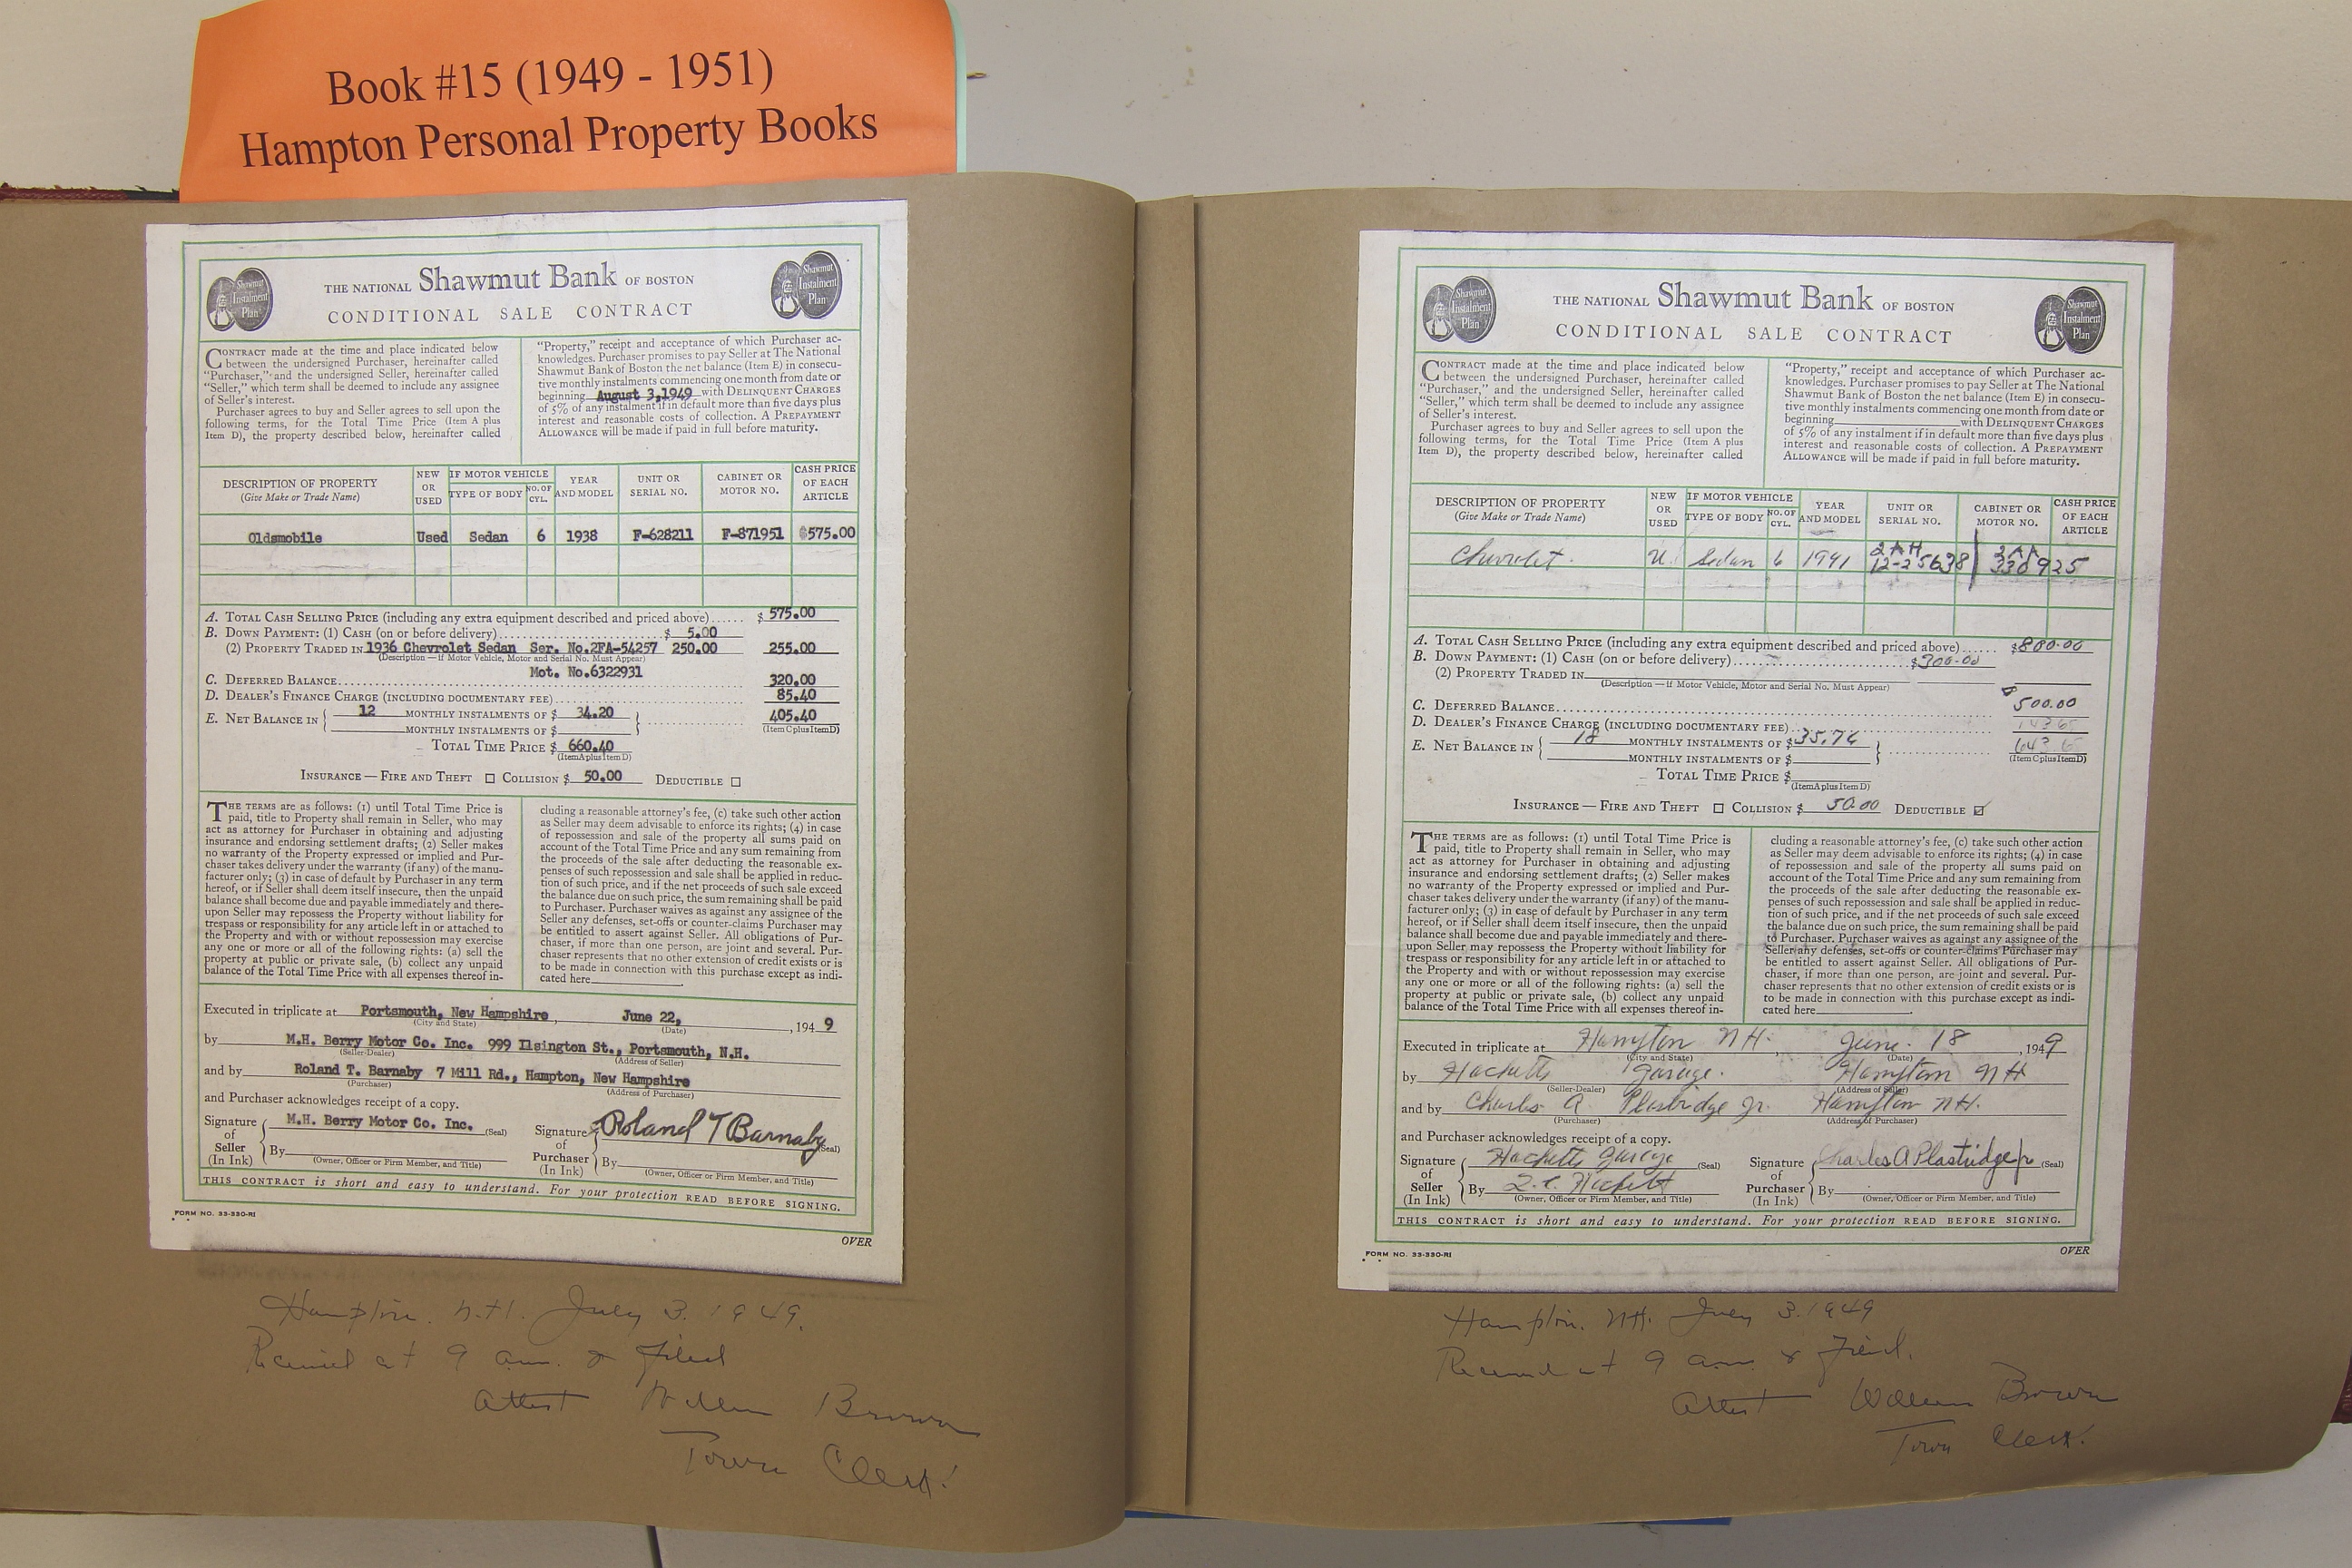 Book #15 (1949 - 1951)
Hampton Personal Property Books
Shawmut
Instalment
Plan
THE NATIONAL Shawmut Bank OF BOSTON
CONDITIONAL SALE CONTRACT
Shawmut
Instalment
Plan
CONTRACT made at the time and place indicated below
between the undersigned Purchaser, hereinafter called
"Purchaser," and the undersigned Seller, hereinafter called
"Seller," which term shall be deemed to include any assignee
of Seller's interest.
Purchaser agrees to buy and Seller agrees to sell upon the
following terms, for the Total Time Price (Item A plus
Item D), the property described below, hereinafter called
"Property," receipt and acceptance of which Purchaser ac-
knowledges. Purchaser promises to pay Seller at The National
Shawmut Bank of Boston the net balance (Item E) in consecu-
tive monthly instalments commencing one month from date or
beginning August 3,1949 with DELINQUENT CHARGES
of 5% of any instalment if in default more than five days plus
interest and reasonable costs of collection. A PREPAYMENT
ALLOWANCE will be made if paid in full before maturity.
DESCRIPTION OF PROPERTY
(Give Make or Trade Name)
NEW
OR
USED
IF MOTOR VEHICLE
TYPE OF BODY
NO. OF
CYL.
YEAR
AND MODEL
UNIT OR
SERIAL NO.
CABINET OR
MOTOR NO.
CASH PRICE
OF EACH
ARTICLE
Oldsmobile Used Sedan 6 1938 F-628211 F-871951 $575.00
A. TOTAL CASH SELLING PRICE (including any extra equipment described and priced above)...... $ 575.00
B. DOWN PAYMENT: (1) CASH (on or before delivery)........ $ 5.00
(2) PROPERTY TRADED IN 1936 Chevrolet Sedan Ser. No.2FA-54257 250.00 255.00
(Description — if Motor Vehicle, Motor and Serial No. Must Appear)
Mot. No.6322931
C. DEFERRED BALANCE........ 320.00
D. DEALER'S FINANCE CHARGE (INCLUDING DOCUMENTARY FEE)........ 85.40
E. NET BALANCE IN { 12 MONTHLY INSTALMENTS OF $ 34.20 } ........ 405.40
MONTHLY INSTALMENTS OF $ (Item C plus Item D)
TOTAL TIME PRICE $ 660.40
(Item A plus Item D)
INSURANCE — FIRE AND THEFT ☐ COLLISION $ 50.00 DEDUCTIBLE ☐
THE TERMS are as follows: (1) until Total Time Price is
paid, title to Property shall remain in Seller, who may
act as attorney for Purchaser in obtaining and adjusting
insurance and endorsing settlement drafts; (2) Seller makes
no warranty of the Property expressed or implied and Pur-
chaser takes delivery under the warranty (if any) of the manu-
facturer only; (3) in case of default by Purchaser in any term
hereof, or if Seller shall deem itself insecure, then the unpaid
balance shall become due and payable immediately and there-
upon Seller may repossess the Property without liability for
trespass or responsibility for any article left in or attached to
the Property and with or without repossession may exercise
any one or more or all of the following rights: (a) sell the
property at public or private sale, (b) collect any unpaid
balance of the Total Time Price with all expenses thereof in-
cluding a reasonable attorney's fee, (c) take such other action
as Seller may deem advisable to enforce its rights; (4) in case
of repossession and sale of the property all sums paid on
account of the Total Time Price and any sum remaining from
the proceeds of the sale after deducting the reasonable ex-
penses of such repossession and sale shall be applied in reduc-
tion of such price, and if the net proceeds of such sale exceed
the balance due on such price, the sum remaining shall be paid
to Purchaser. Purchaser waives as against any assignee of the
Seller any defenses, set-offs or counter-claims Purchaser may
be entitled to assert against Seller. All obligations of Pur-
chaser, if more than one person, are joint and several. Pur-
chaser represents that no other extension of credit exists or is
to be made in connection with this purchase except as indi-
cated here
Executed in triplicate at Portsmouth, New Hampshire, June 22, , 1949
(City and State) (Date)
by M.H. Berry Motor Co. Inc. 999 Ilsington St., Portsmouth, N.H.
(Seller-Dealer) (Address of Seller)
and by Roland T. Barnaby 7 Mill Rd., Hampton, New Hampshire
(Purchaser) (Address of Purchaser)
and Purchaser acknowledges receipt of a copy.
Signature of Seller (In Ink) M.H. Berry Motor Co. Inc. (Seal)
By
(Owner, Officer or Firm Member, and Title)
Signature of Purchaser (In Ink) Roland T Barnaby (Seal)
By
(Owner, Officer or Firm Member, and Title)
THIS CONTRACT is short and easy to understand. For your protection READ BEFORE SIGNING.
FORM NO. 33-330-RI
OVER
Hampton. N.H. July 3. 1949.
Received at 9 a.m. & filed
Attest William Brown
Town Clerk.
Shawmut
Instalment
Plan
THE NATIONAL Shawmut Bank OF BOSTON
CONDITIONAL SALE CONTRACT
Shawmut
Instalment
Plan
CONTRACT made at the time and place indicated below
between the undersigned Purchaser, hereinafter called
"Purchaser," and the undersigned Seller, hereinafter called
"Seller," which term shall be deemed to include any assignee
of Seller's interest.
Purchaser agrees to buy and Seller agrees to sell upon the
following terms, for the Total Time Price (Item A plus
Item D), the property described below, hereinafter called
"Property," receipt and acceptance of which Purchaser ac-
knowledges. Purchaser promises to pay Seller at The National
Shawmut Bank of Boston the net balance (Item E) in consecu-
tive monthly instalments commencing one month from date or
beginning with DELINQUENT CHARGES
of 5% of any instalment if in default more than five days plus
interest and reasonable costs of collection. A PREPAYMENT
ALLOWANCE will be made if paid in full before maturity.
DESCRIPTION OF PROPERTY
(Give Make or Trade Name)
NEW
OR
USED
IF MOTOR VEHICLE
TYPE OF BODY
NO. OF
CYL.
YEAR
AND MODEL
UNIT OR
SERIAL NO.
CABINET OR
MOTOR NO.
CASH PRICE
OF EACH
ARTICLE
Chevrolet. U. Sedan 6 1941 2AH 12-25638 | 2AA 330925
A. TOTAL CASH SELLING PRICE (including any extra equipment described and priced above)...... $800.00
B. DOWN PAYMENT: (1) CASH (on or before delivery)........ $300.00
(2) PROPERTY TRADED IN
(Description — if Motor Vehicle, Motor and Serial No. Must Appear)
C. DEFERRED BALANCE........ $500.00
D. DEALER'S FINANCE CHARGE (INCLUDING DOCUMENTARY FEE)........ 143.65
E. NET BALANCE IN { 18 MONTHLY INSTALMENTS OF $35.76 } ........ 643.65
MONTHLY INSTALMENTS OF $ (Item C plus Item D)
TOTAL TIME PRICE $
(Item A plus Item D)
INSURANCE — FIRE AND THEFT ☐ COLLISION $ 50.00 DEDUCTIBLE ☑
THE TERMS are as follows: (1) until Total Time Price is
paid, title to Property shall remain in Seller, who may
act as attorney for Purchaser in obtaining and adjusting
insurance and endorsing settlement drafts; (2) Seller makes
no warranty of the Property expressed or implied and Pur-
chaser takes delivery under the warranty (if any) of the manu-
facturer only; (3) in case of default by Purchaser in any term
hereof, or if Seller shall deem itself insecure, then the unpaid
balance shall become due and payable immediately and there-
upon Seller may repossess the Property without liability for
trespass or responsibility for any article left in or attached to
the Property and with or without repossession may exercise
any one or more or all of the following rights: (a) sell the
property at public or private sale, (b) collect any unpaid
balance of the Total Time Price with all expenses thereof in-
cluding a reasonable attorney's fee, (c) take such other action
as Seller may deem advisable to enforce its rights; (4) in case
of repossession and sale of the property all sums paid on
account of the Total Time Price and any sum remaining from
the proceeds of the sale after deducting the reasonable ex-
penses of such repossession and sale shall be applied in reduc-
tion of such price, and if the net proceeds of such sale exceed
the balance due on such price, the sum remaining shall be paid
to Purchaser. Purchaser waives as against any assignee of the
Seller any defenses, set-offs or counter-claims Purchaser may
be entitled to assert against Seller. All obligations of Pur-
chaser, if more than one person, are joint and several. Pur-
chaser represents that no other extension of credit exists or is
to be made in connection with this purchase except as indi-
cated here
Executed in triplicate at Hampton N.H. , June. 18 , 1949
(City and State) (Date)
by Hacketts Garage. Hampton NH
(Seller-Dealer) (Address of Seller)
and by Charles A Plastridge Jr. Hampton NH.
(Purchaser) (Address of Purchaser)
and Purchaser acknowledges receipt of a copy.
Signature of Seller (In Ink) Hacketts Garage (Seal)
By Hackett
(Owner, Officer or Firm Member, and Title)
Signature of Purchaser (In Ink) Charles A Plastridge Jr (Seal)
By
(Owner, Officer or Firm Member, and Title)
THIS CONTRACT is short and easy to understand. For your protection READ BEFORE SIGNING.
FORM NO. 33-330-RI
OVER
Hampton. NH. July 3. 1949
Received at 9 a.m. & filed.
Attest William Brown
Town Clerk.